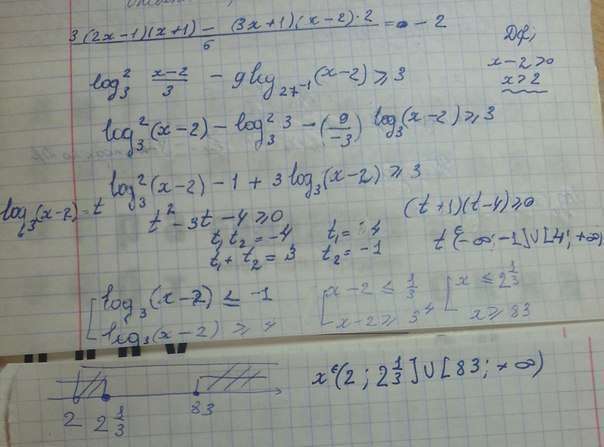 3(2x-1)(x+1) - (3x+1)(x-2)·2 / 6 = -2
x-2>0
x>2
log₃² (x-2)/3 - 9log₂₇₋₁(x-2) ≥ 3
log₃²(x-2) - log₃² 3 - (9/-3) log₃(x-2) ≥ 3
log₃²(x-2) - 1 + 3log₃(x-2) ≥ 3
log₃(x-2) = t
t² - 3t - 4 ≥ 0
(t+1)(t-4) ≥ 0
t₁t₂ = -4
t₁ = 4
t₁+t₂ = 3
t₂ = -1
t ∈ (-∞; -1] ∪ [4; +∞)
[ log₃(x-2) ≤ -1
log₃(x-2) ≥ 4
[ x-2 ≤ 1/3
x-2 ≥ 3⁴
[ x ≤ 2 1/3
x ≥ 83
2
2 1/3
83
x ∈ (2; 2 1/3] ∪ [83; +∞)